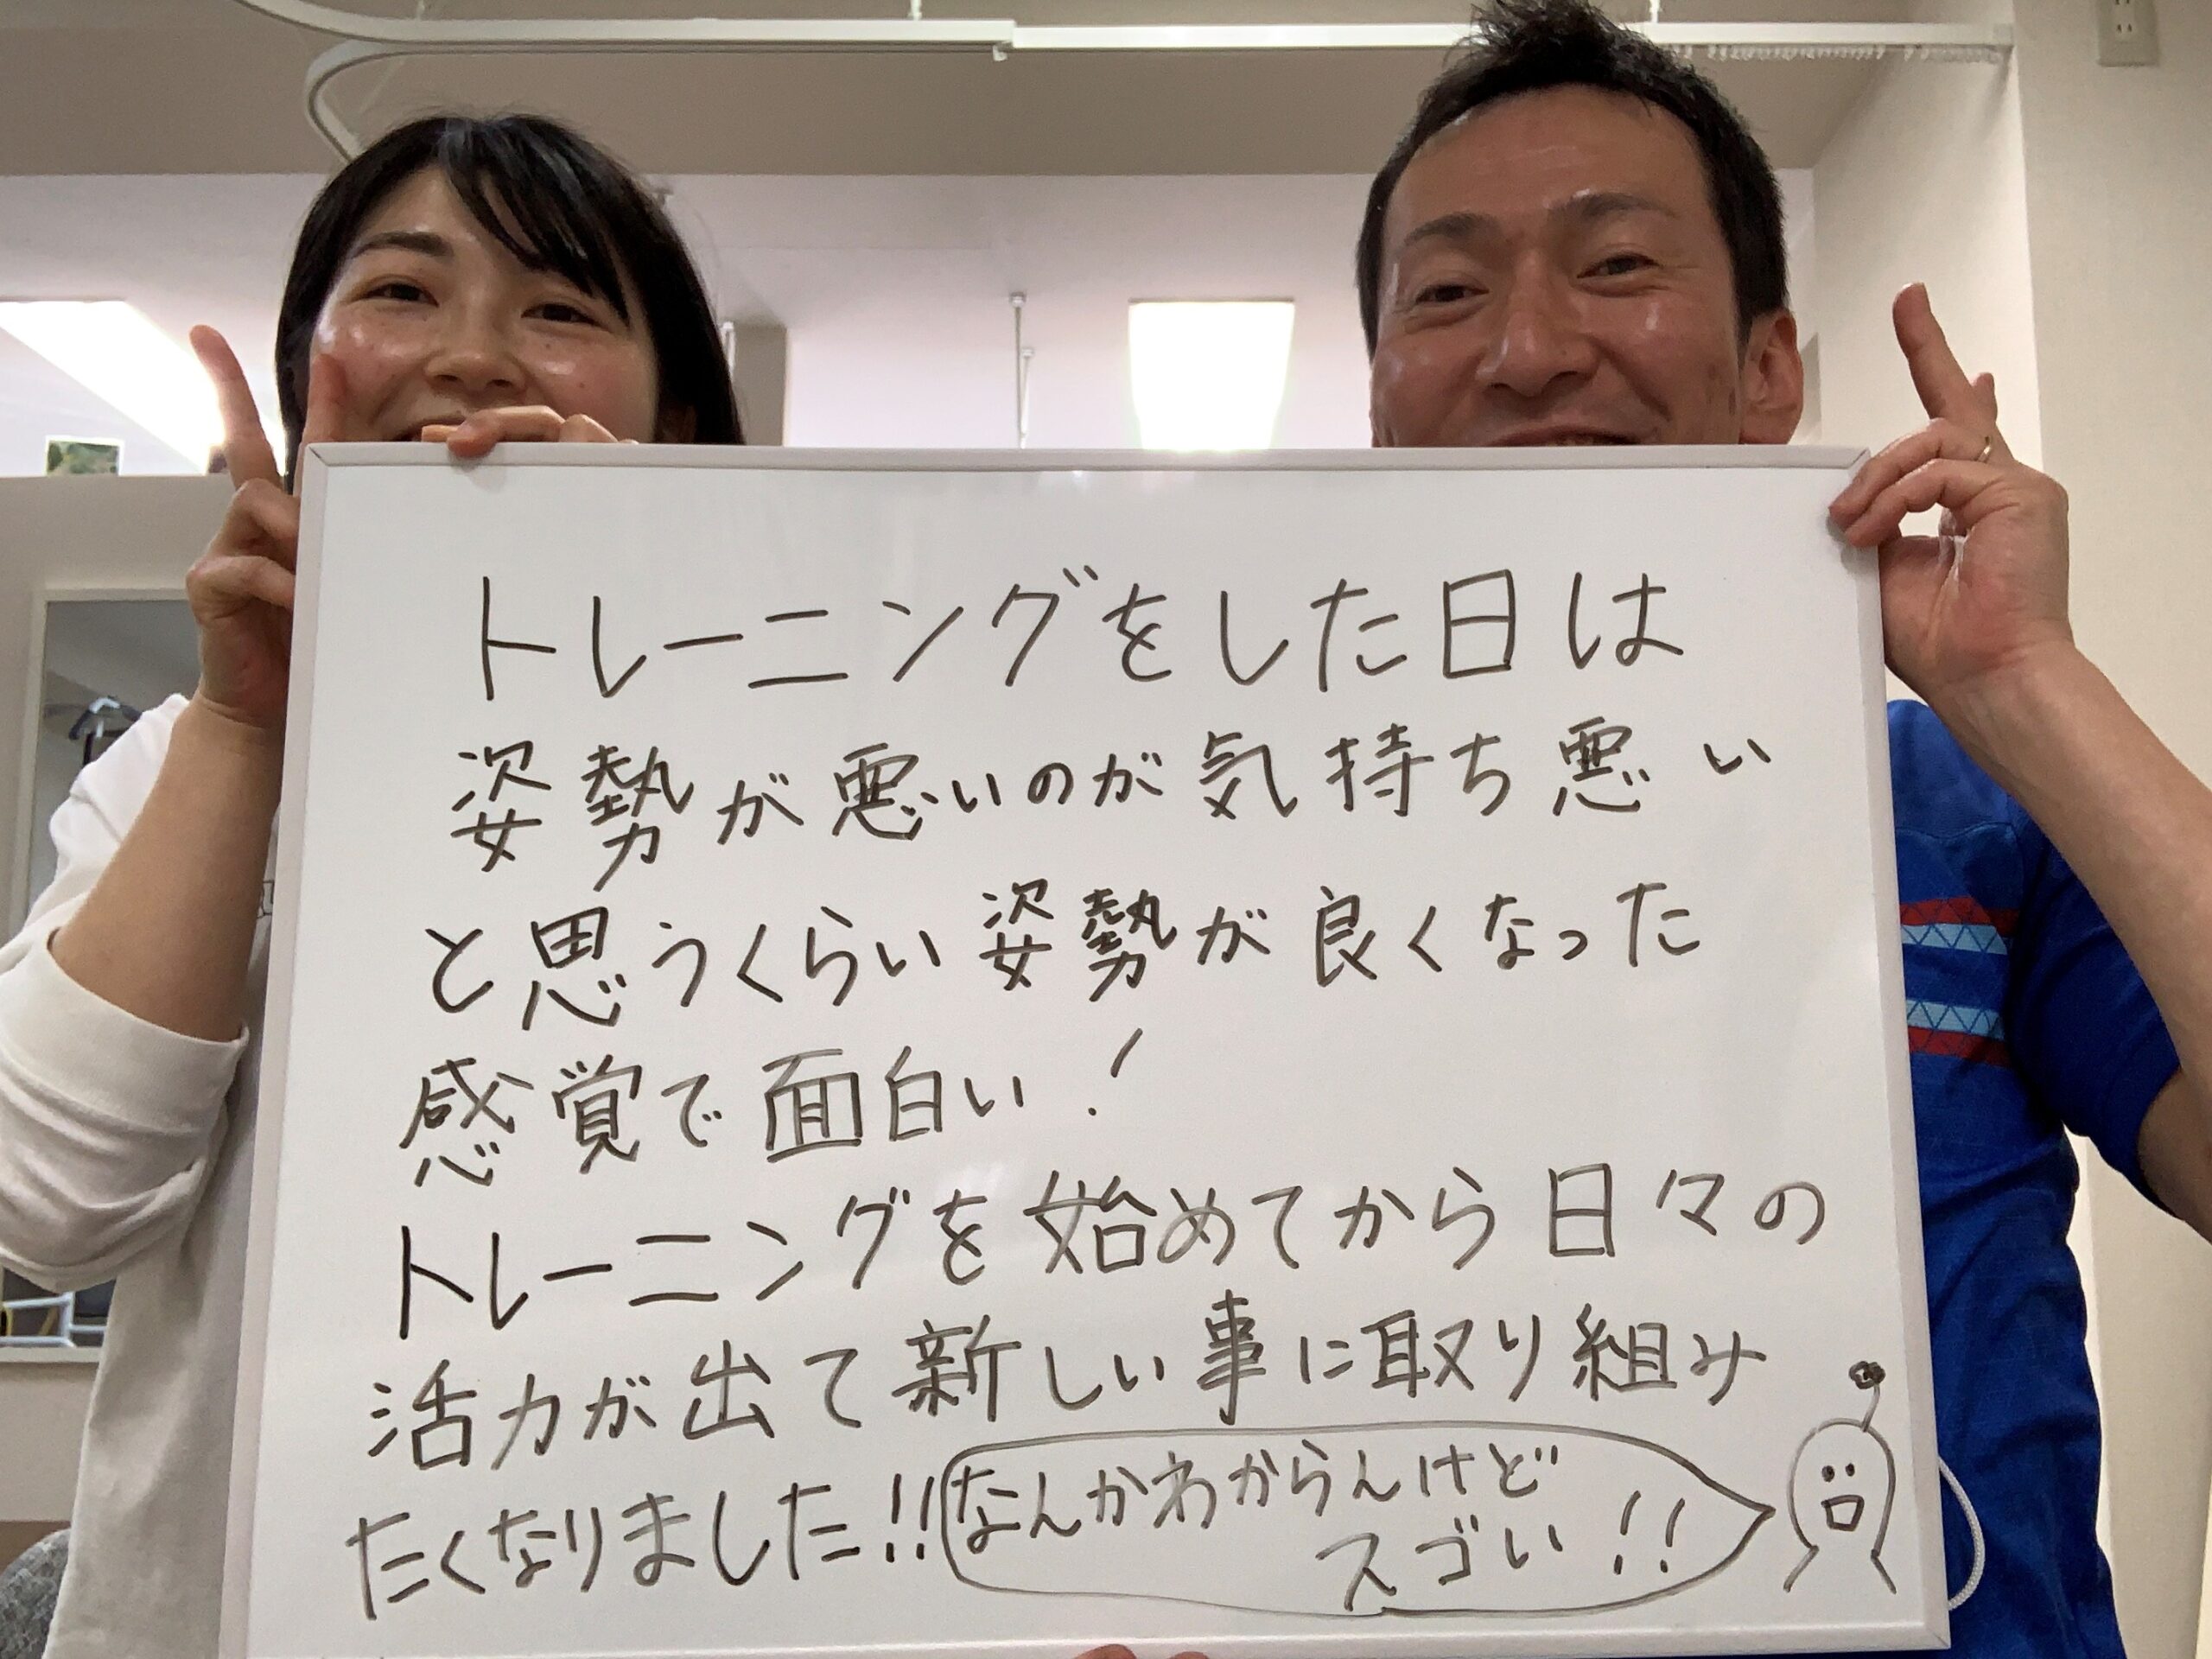 トレーニングをした日は
姿勢が悪いのが気持ち悪い
と思うくらい姿勢が良くなった
感覚で面白い!
トレーニングを始めてから日々の
活力が出て新しい事に取り組み
たくなりました!!
なんかわからんけど
スゴい!!